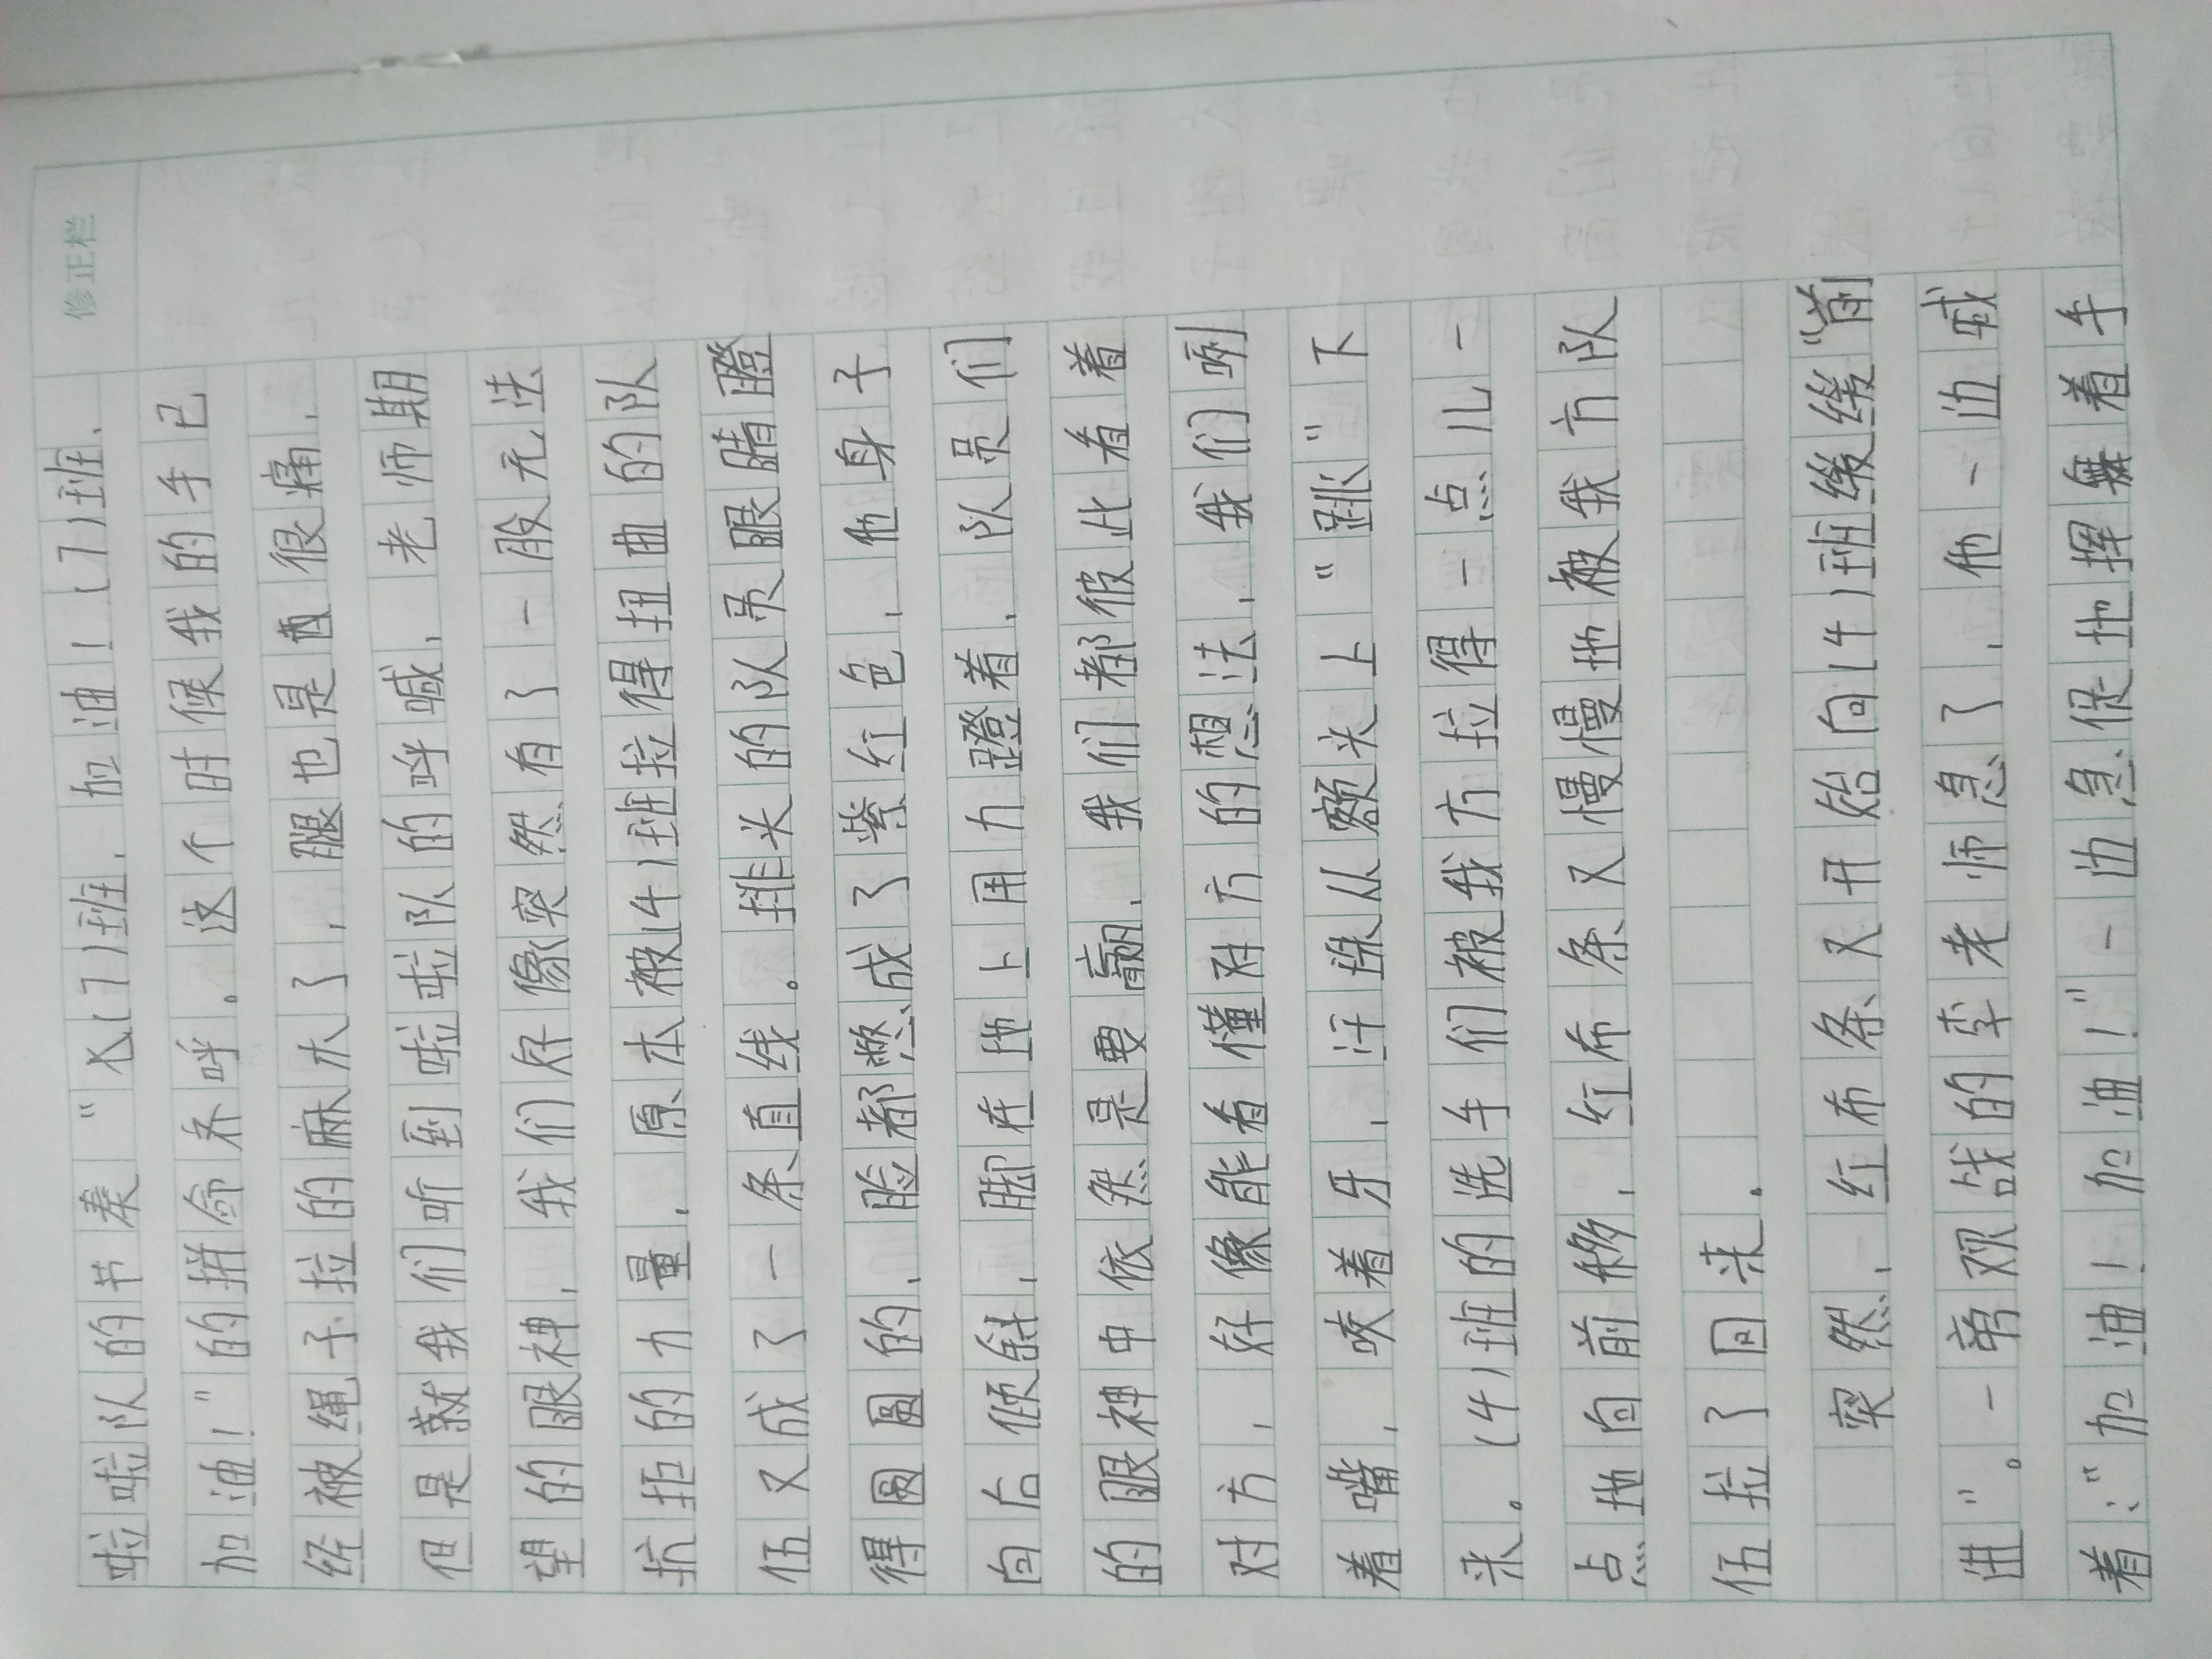 修正栏
啦啦队的节奏“六(7)班,加油!(7)班,
加油!”的拼命呼。这个时候我的手已
经被绳子拉的麻木了,腿也是很痛,
但是我们听到啦啦队的呼喊,老师期
望的眼神,我们好像突然有了一股无法
抗拒的力量,原本被(4)班拉得扭曲的队
伍又成了一条直线。排头的队员眼睛瞪
得圆圆的,脸都憋成了紫红色,他身子
向后倾斜,脚在地上用力蹬着,队员们
的眼神中依然是要赢,我们都彼此看着
对方,好像能看懂对方的想法,我们咧
着嘴,咬着牙,汗珠从额头上“跳”下
来。(4)班的选手们被我方拉得一点儿一
点地向前移,红布条又慢慢地被我方队
伍拉了回来。
突然,红布条又开始向(4)班缓缓“前
进”。一旁观战的李老师急了,他一边喊
着:“加油!加油!”一边急促地挥舞着手